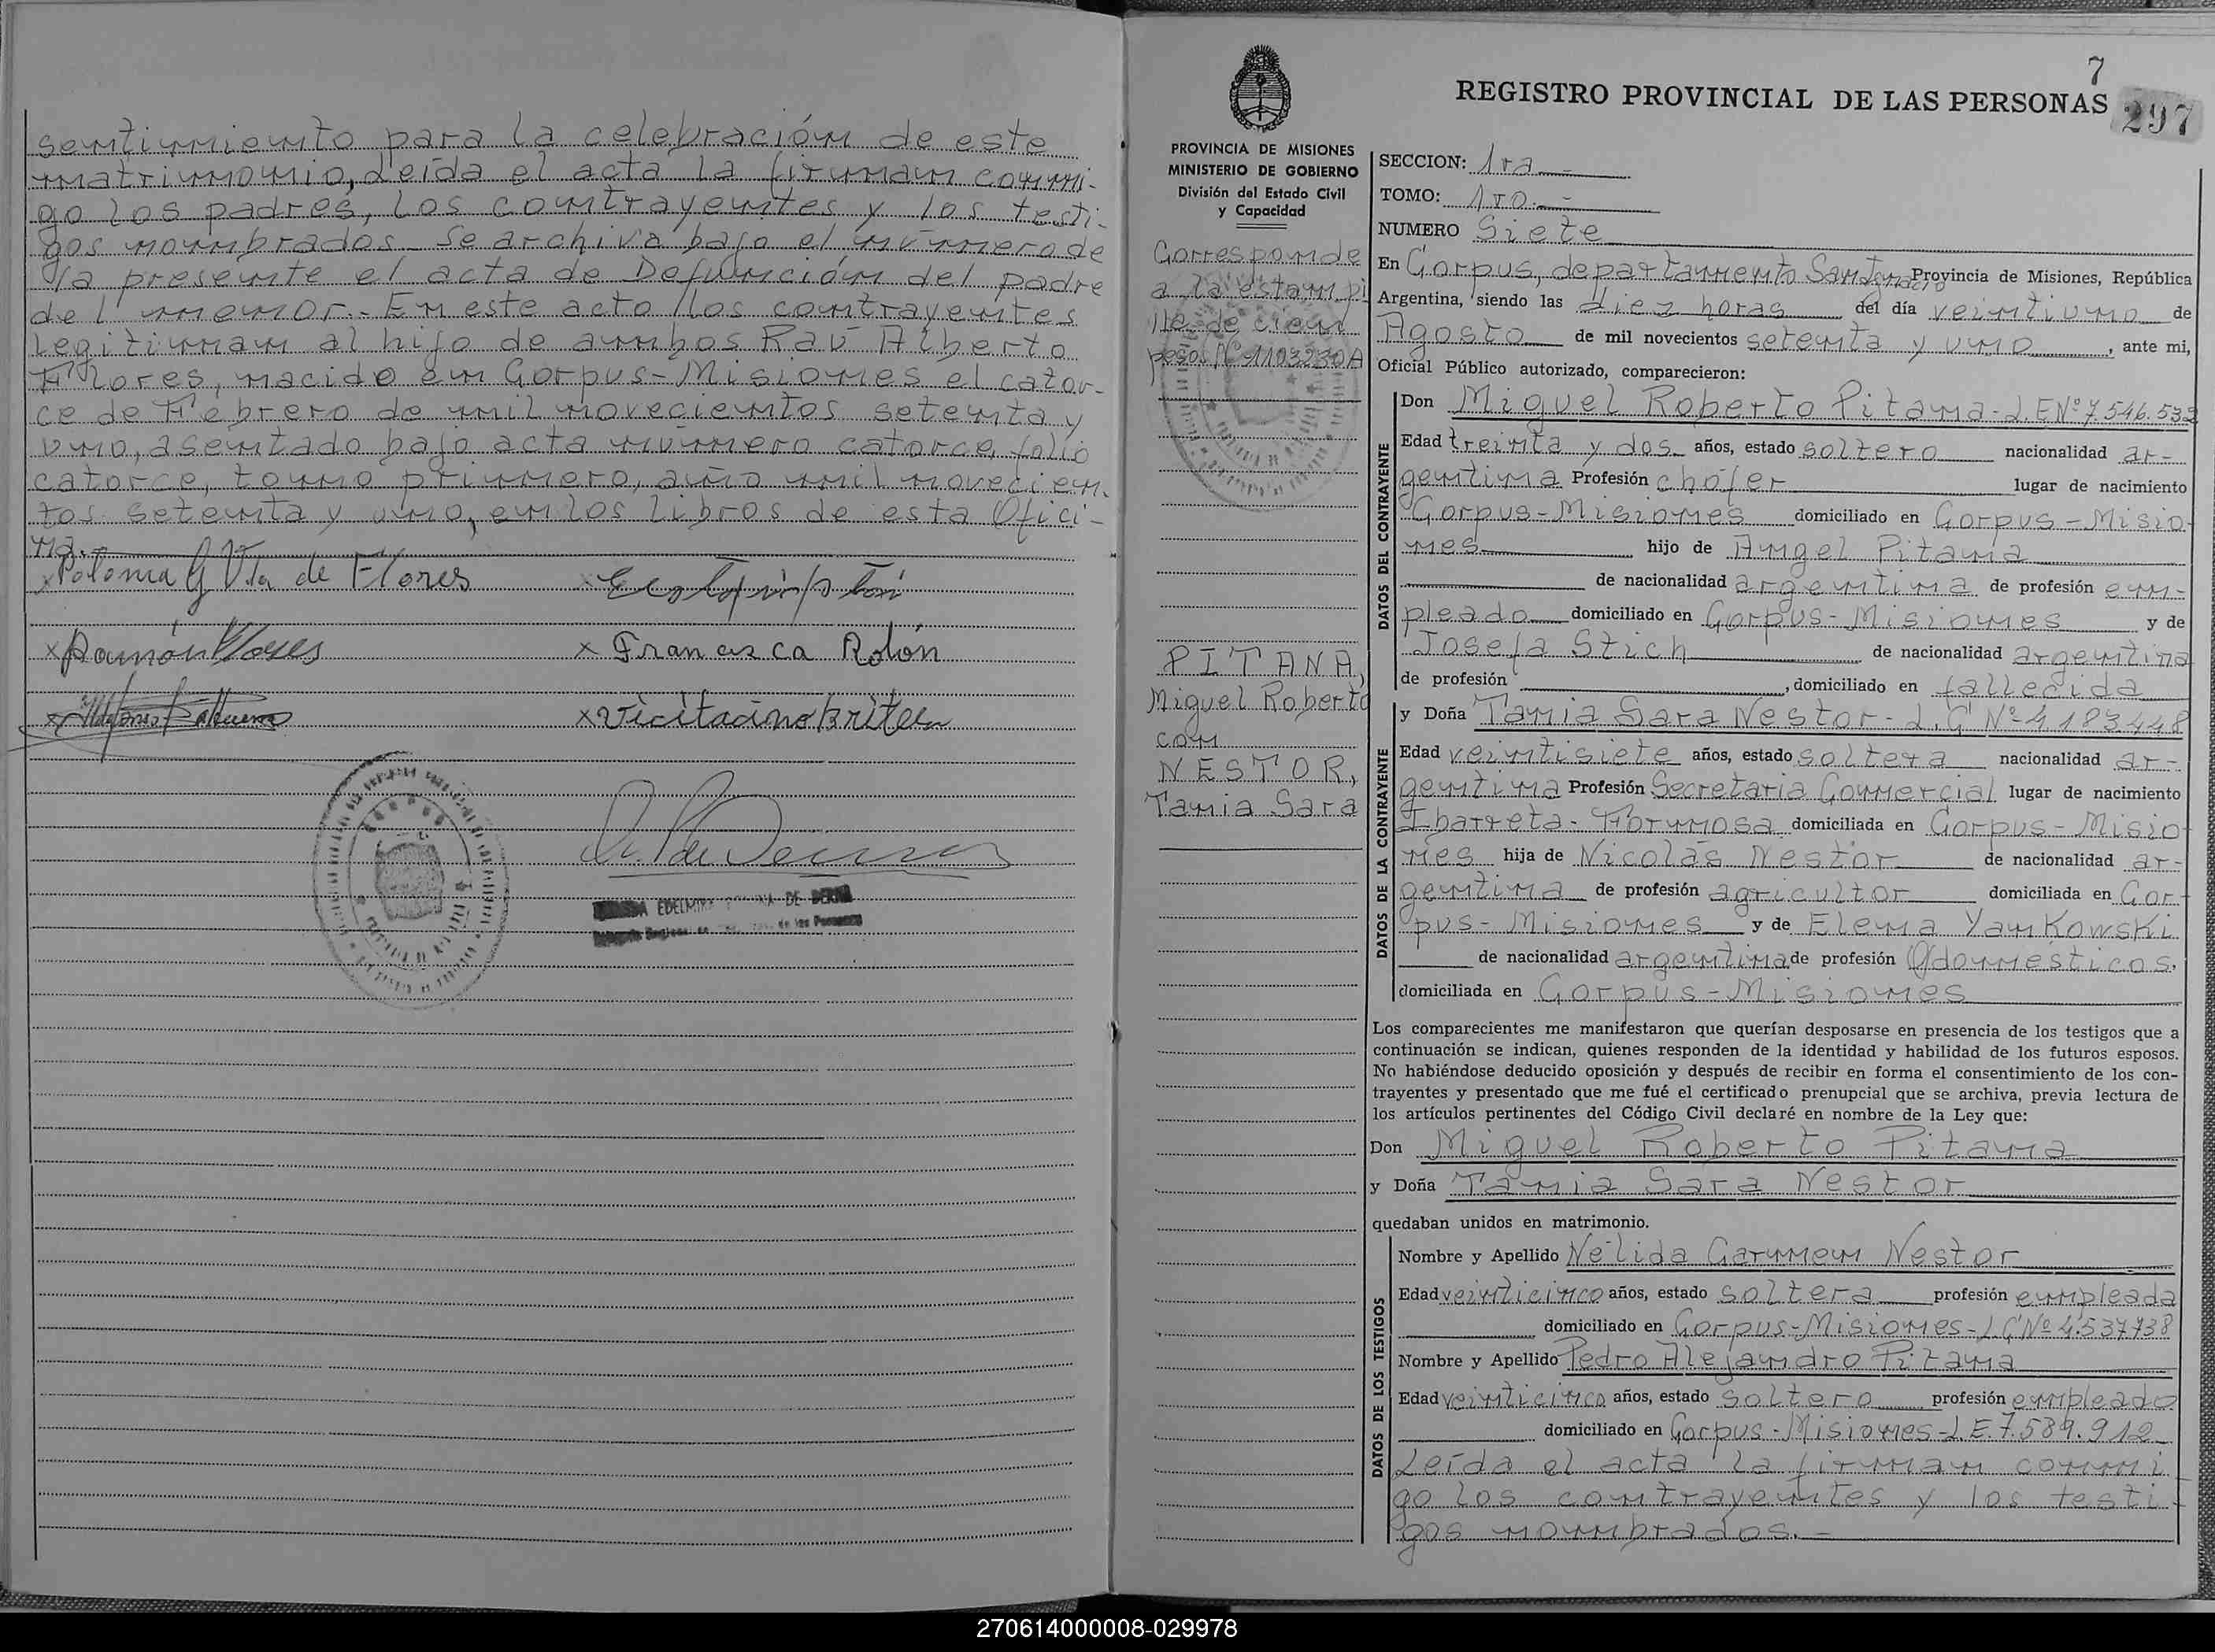 sentimiento para la celebración de este
matrimonio, leída el acta la firman conmi-
go los padres, los contrayentes y los testi-
gos nombrados. Se archiva bajo el número de
la presente el acta de Defunción del padre
del menor.- En este acto los contrayentes
legitiman al hijo de ambos Raú Alberto
Flores, nacido en Corpus-Misiones el cator-
ce de Febrero de mil novecientos setenta y
uno, asentado bajo acta número catorce, folio
catorce, tomo primero, año mil novecien-
tos setenta y uno, en los libros de esta Ofici-
na.-
x Polonia G Vta de Flores
x Ramón Flores
x Francisca Rolón
EDELMIRA DE
de las Personas
7
REGISTRO PROVINCIAL DE LAS PERSONAS
297
PROVINCIA DE MISIONES
MINISTERIO DE GOBIERNO
División del Estado Civil
y Capacidad
Corresponde
a la estampi
lla de cien
pesos Nº 1103230A
PITANA,
Miguel Roberto
con
NESTOR,
Tania Sara
SECCION: 1ra.-
TOMO: 1ro.-
NUMERO Siete
En Corpus, departamento San Ignacio Provincia de Misiones, República
Argentina, siendo las diez horas del día veintiuno de
Agosto de mil novecientos setenta y uno, ante mi,
Oficial Público autorizado, comparecieron:
DATOS DEL CONTRAYENTE
Don Miguel Roberto Pitana-L.E Nº 7.546.532
Edad treinta y dos años, estado soltero nacionalidad ar-
gentina Profesión chófer lugar de nacimiento
Corpus-Misiones domiciliado en Corpus-Misio-
nes hijo de Angel Pitana
de nacionalidad argentina de profesión em-
pleado domiciliado en Corpus-Misiones y de
Josefa Stich de nacionalidad argentina
de profesión , domiciliado en fallecida
DATOS DE LA CONTRAYENTE
y Doña Tania Sara Nestor-L.C Nº 4183448
Edad veintisiete años, estado soltera nacionalidad ar-
gentina Profesión Secretaria Comercial lugar de nacimiento
Ibarreta-Formosa domiciliada en Corpus-Misio-
nes hija de Nicolás Nestor de nacionalidad ar-
gentina de profesión agricultor domiciliada en Cor-
pus-Misiones y de Elena Yankowski
de nacionalidad argentina de profesión Q domésticos,
domiciliada en Corpus-Misiones
Los comparecientes me manifestaron que querían desposarse en presencia de los testigos que a
continuación se indican, quienes responden de la identidad y habilidad de los futuros esposos.
No habiéndose deducido oposición y después de recibir en forma el consentimiento de los con-
trayentes y presentado que me fué el certificado prenupcial que se archiva, previa lectura de
los artículos pertinentes del Código Civil declaré en nombre de la Ley que:
Don Miguel Roberto Pitana
y Doña Tania Sara Nestor
quedaban unidos en matrimonio.
DATOS DE LOS TESTIGOS
Nombre y Apellido Nélida Carmen Nestor
Edad veinticinco años, estado soltera profesión empleada
domiciliado en Corpus-Misiones-L.C Nº 4.537738
Nombre y Apellido Pedro Alejandro Pitana
Edad veinticinco años, estado soltero profesión empleado
domiciliado en Corpus-Misiones-L.E.7.589.912
Leída el acta la firman conmi
go los contrayentes y los testi-
gos nombrados.-
270614000008-029978